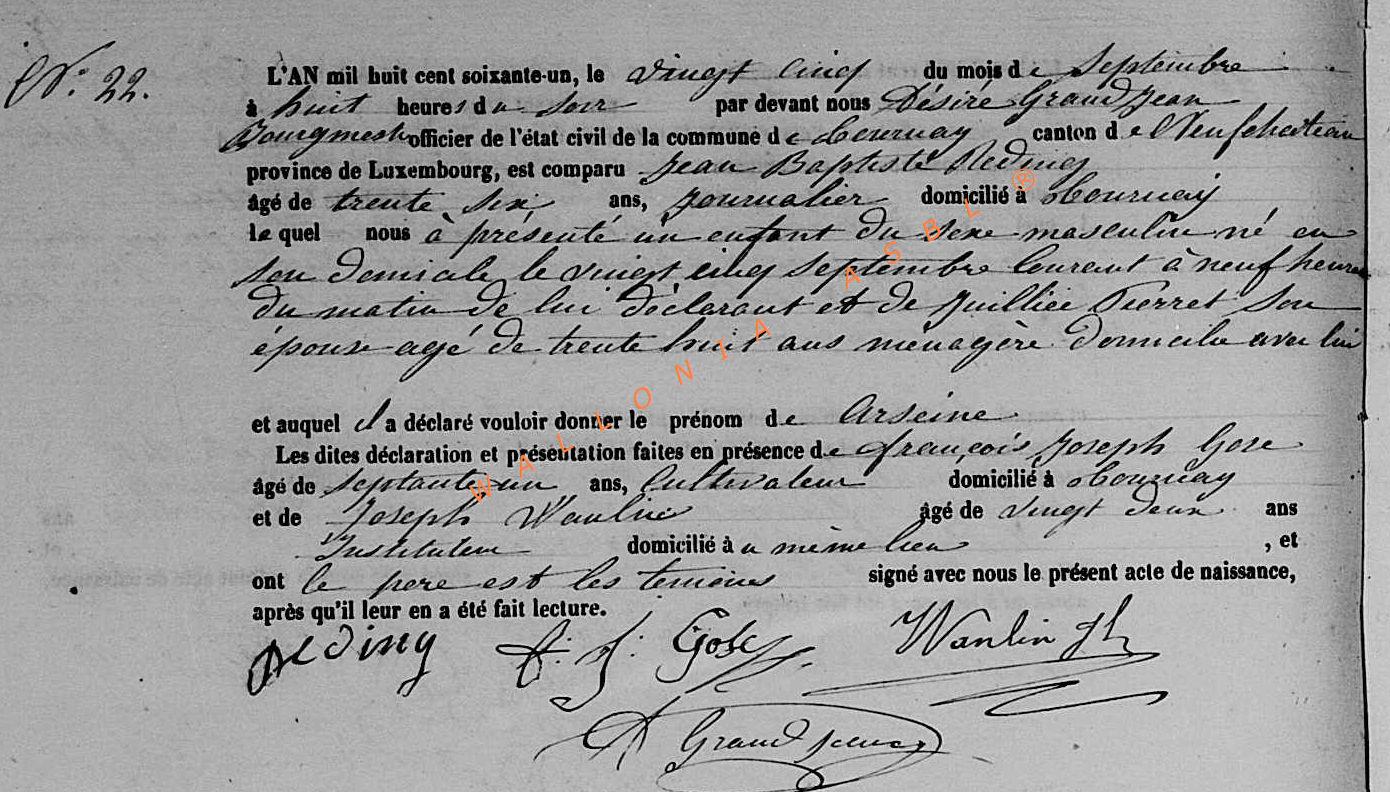 N° 22.
L'AN mil huit cent soixante-un, le vingt cinq du mois de Septembre
à huit heures du soir par devant nous Désiré Grandjean
Bourgmestre officier de l'état civil de la commune de Tournay canton de Neufchateau
province de Luxembourg, est comparu Jean Baptiste Reding
âgé de trente six ans, journalier domicilié à Tournay
le quel nous à présenté un enfant du sexe masculin né en
son domicile le vingt cinq Septembre Courant à neuf heures
du matin de lui déclarant et de Juilliée Pierret son
épouse agé de trente huit ans ménagère domicilie avec lui
et auquel il a déclaré vouloir donner le prénom de Arseine
Les dites déclaration et présentation faites en présence de françois Joseph Gose
âgé de septante un ans, Cultivateur domicilié à Tournay
et de Joseph Wanlin âgé de vingt deux ans
Instituteur domicilié à u même lieu , et
ont le pere est les temoins signé avec nous le présent acte de naissance,
après qu'il leur en a été fait lecture.
Reding f. J. Gose Wanlin Jh
D Grandjean
WALLONIA ASBL ®